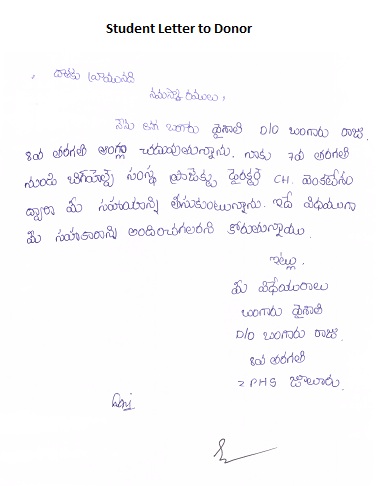 Student Letter to Donor
దాతకు వ్రాయునది
నమస్కారములు,
నేను బంగారు వైశాలి D/O బంగారు రాజు
8వ తరగతి చదువుతున్నాను. నాకు 7వ తరగతి
నుండి సంస్థ ప్రాజెక్టు డైరెక్టర్ CH. వెంకటేశం
ద్వారా మీ సహాయాన్ని తీసుకుంటున్నాను. ఇదే విధముగా
మీ సహకారాన్ని అందించగలరని కోరుతున్నాను.
ఇట్లు
మీ విధేయురాలు
బంగారు వైశాలి
D/O బంగారు రాజు
8వ తరగతి
ZPHS